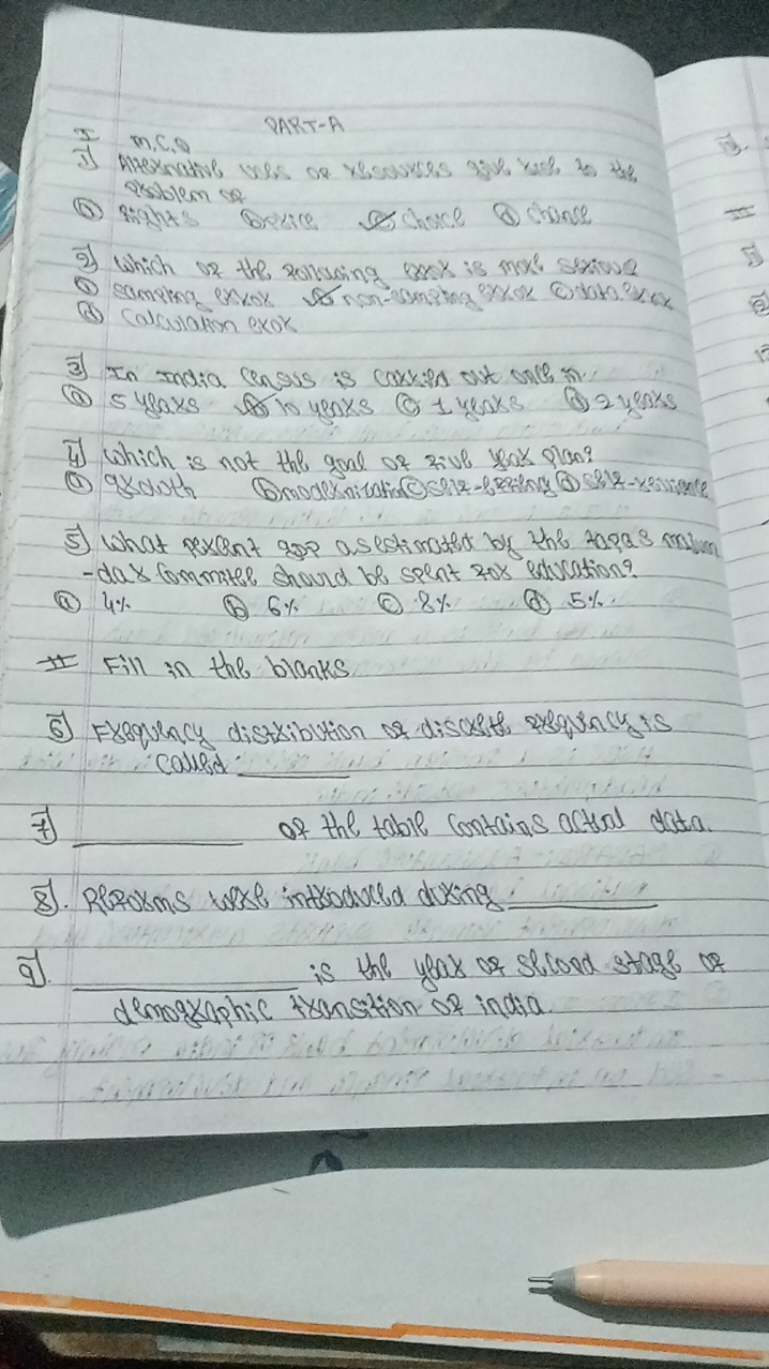 PART-A
I M.C.Q
1] Alternative uses of resources give rise to the
problem of
ⓐ Rights ⓑ price ⓒ choice ⓓ chance
2] Which of the following error is most serious
ⓐ sampling error ⓑ non-sampling error ⓒ data error
ⓓ Calculation eror
3] In India Census is carried out once in.
ⓐ 5 years ⓑ 10 years ⓒ 1 years ⓓ 2 years
4] Which is not the goal of five year plan?
ⓐ growth ⓑ modernization ⓒ self- ⓓ self-
5] What percent gdp as estimated by the tapas majum
-dar Committee should be spent for education?
ⓐ 4% ⓑ 6% ⓒ 8% ⓓ 5%
II Fill in the blanks
6] Frequency distribution of discrete frequency is
called ________
7] ________ of the table contains actual data.
8]. Reforms were introduced during ________
9]. ________ is the year of second stage of
demographic transition of india.